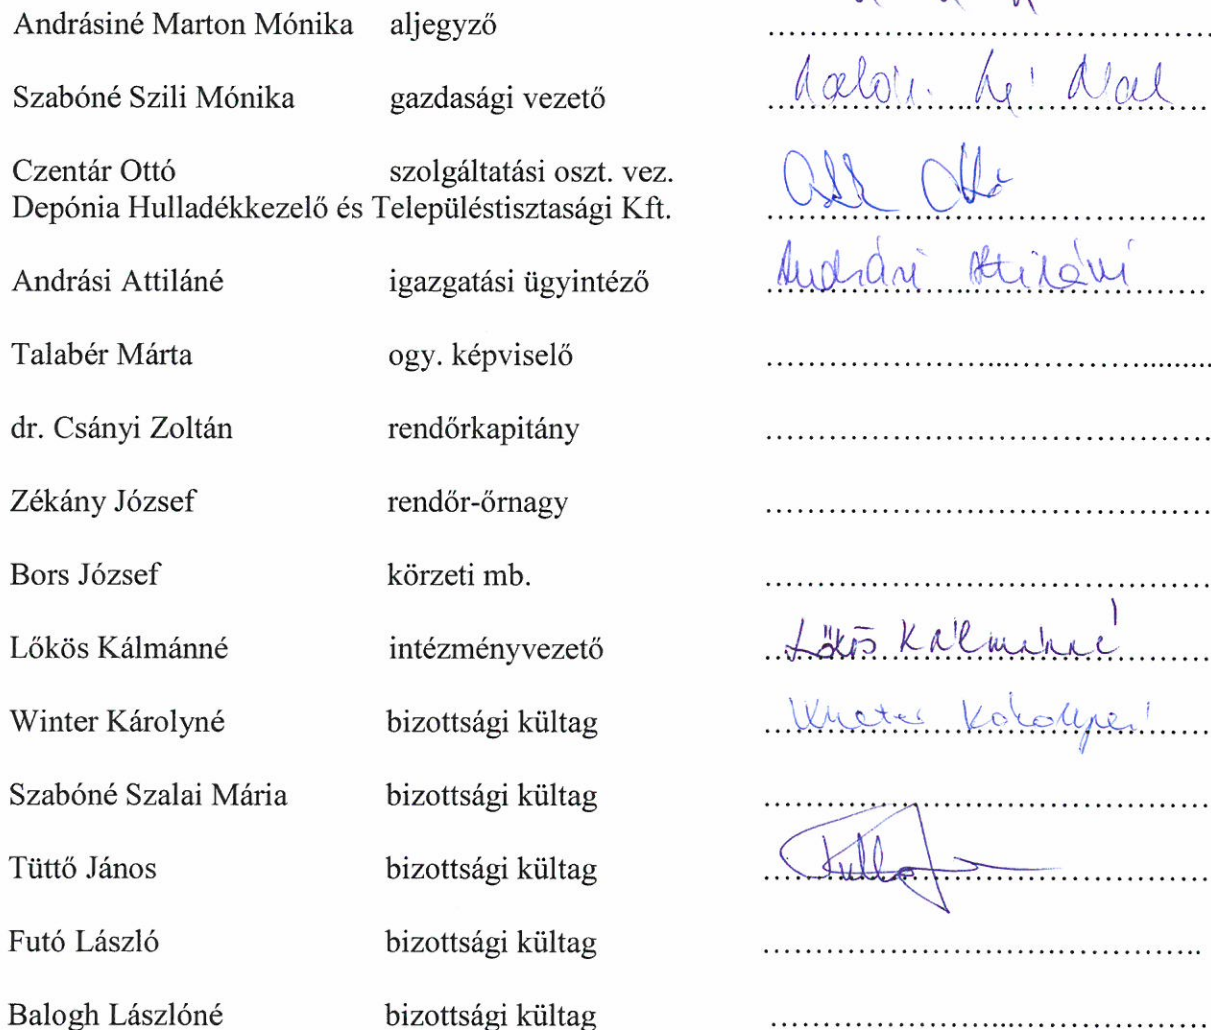 Andrásiné Marton Mónika aljegyző ........................................
Szabóné Szili Mónika gazdasági vezető ........................................
Czentár Ottó szolgáltatási oszt. vez.
Depónia Hulladékkezelő és Településtisztasági Kft. ........................................
Andrási Attiláné igazgatási ügyintéző Andrási Attiláné
Talabér Márta ogy. képviselő ........................................
dr. Csányi Zoltán rendőrkapitány ........................................
Zékány József rendőr-őrnagy ........................................
Bors József körzeti mb. ........................................
Lőkös Kálmánné intézményvezető Lőkös Kálmánné
Winter Károlyné bizottsági kültag Winter Károlyné
Szabóné Szalai Mária bizottsági kültag ........................................
Tüttő János bizottsági kültag ........................................
Futó László bizottsági kültag ........................................
Balogh Lászlóné bizottsági kültag ........................................